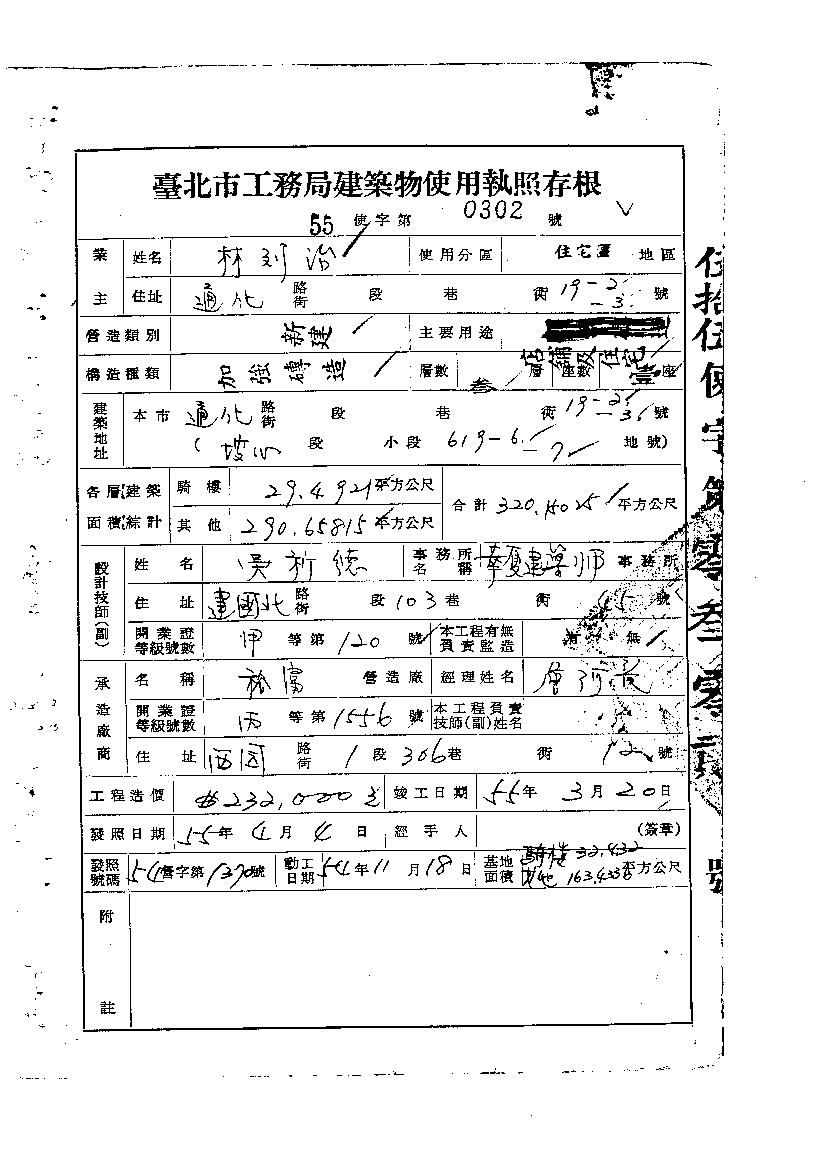 臺北市工務局建築物使用執照存根
55 使字第 0302 號
業主 姓名 林 治 使用分區 住宅區 地區
住址 通化 路街 段 巷 衖 19-2 -3 號
營造類別 新建 主要用途 店舖及住宅
構造種類 加強磚造 層數 叁 層 座數 壹 座
建築地址 本市 通化 路街 段 巷 衖 19-2 -3 號
(坡心 段 小段 619-6 -7 地號)
各層建築面積綜計 騎樓 29.4921 平方公尺 合計 320.15025 平方公尺
其他 290.65815 平方公尺
設計技師(副) 姓名 吳 德 事務所名稱 華夏建築師 事務所
住址 建國北 路街 段 103 巷 衖 號
開業證等級號數 甲 等第 120 號 本工程有無負責監造 無
承造廠商 名稱 營造廠 經理姓名
開業證等級號數 丙 等第 1556 號 本工程負責技師(副)姓名
住址 西園 路街 1 段 306 巷 衖 12 號
工程造價 $232,000元 竣工日期 55年 3月 20日
發照日期 55年 4月 4日 經手人 (簽章)
發照號碼 54營字第1370號 動工日期 54年11月18日 基地面積 騎樓 32.432 其他 163.4338 平方公尺
附註
伍拾伍使字第零叁零貳號